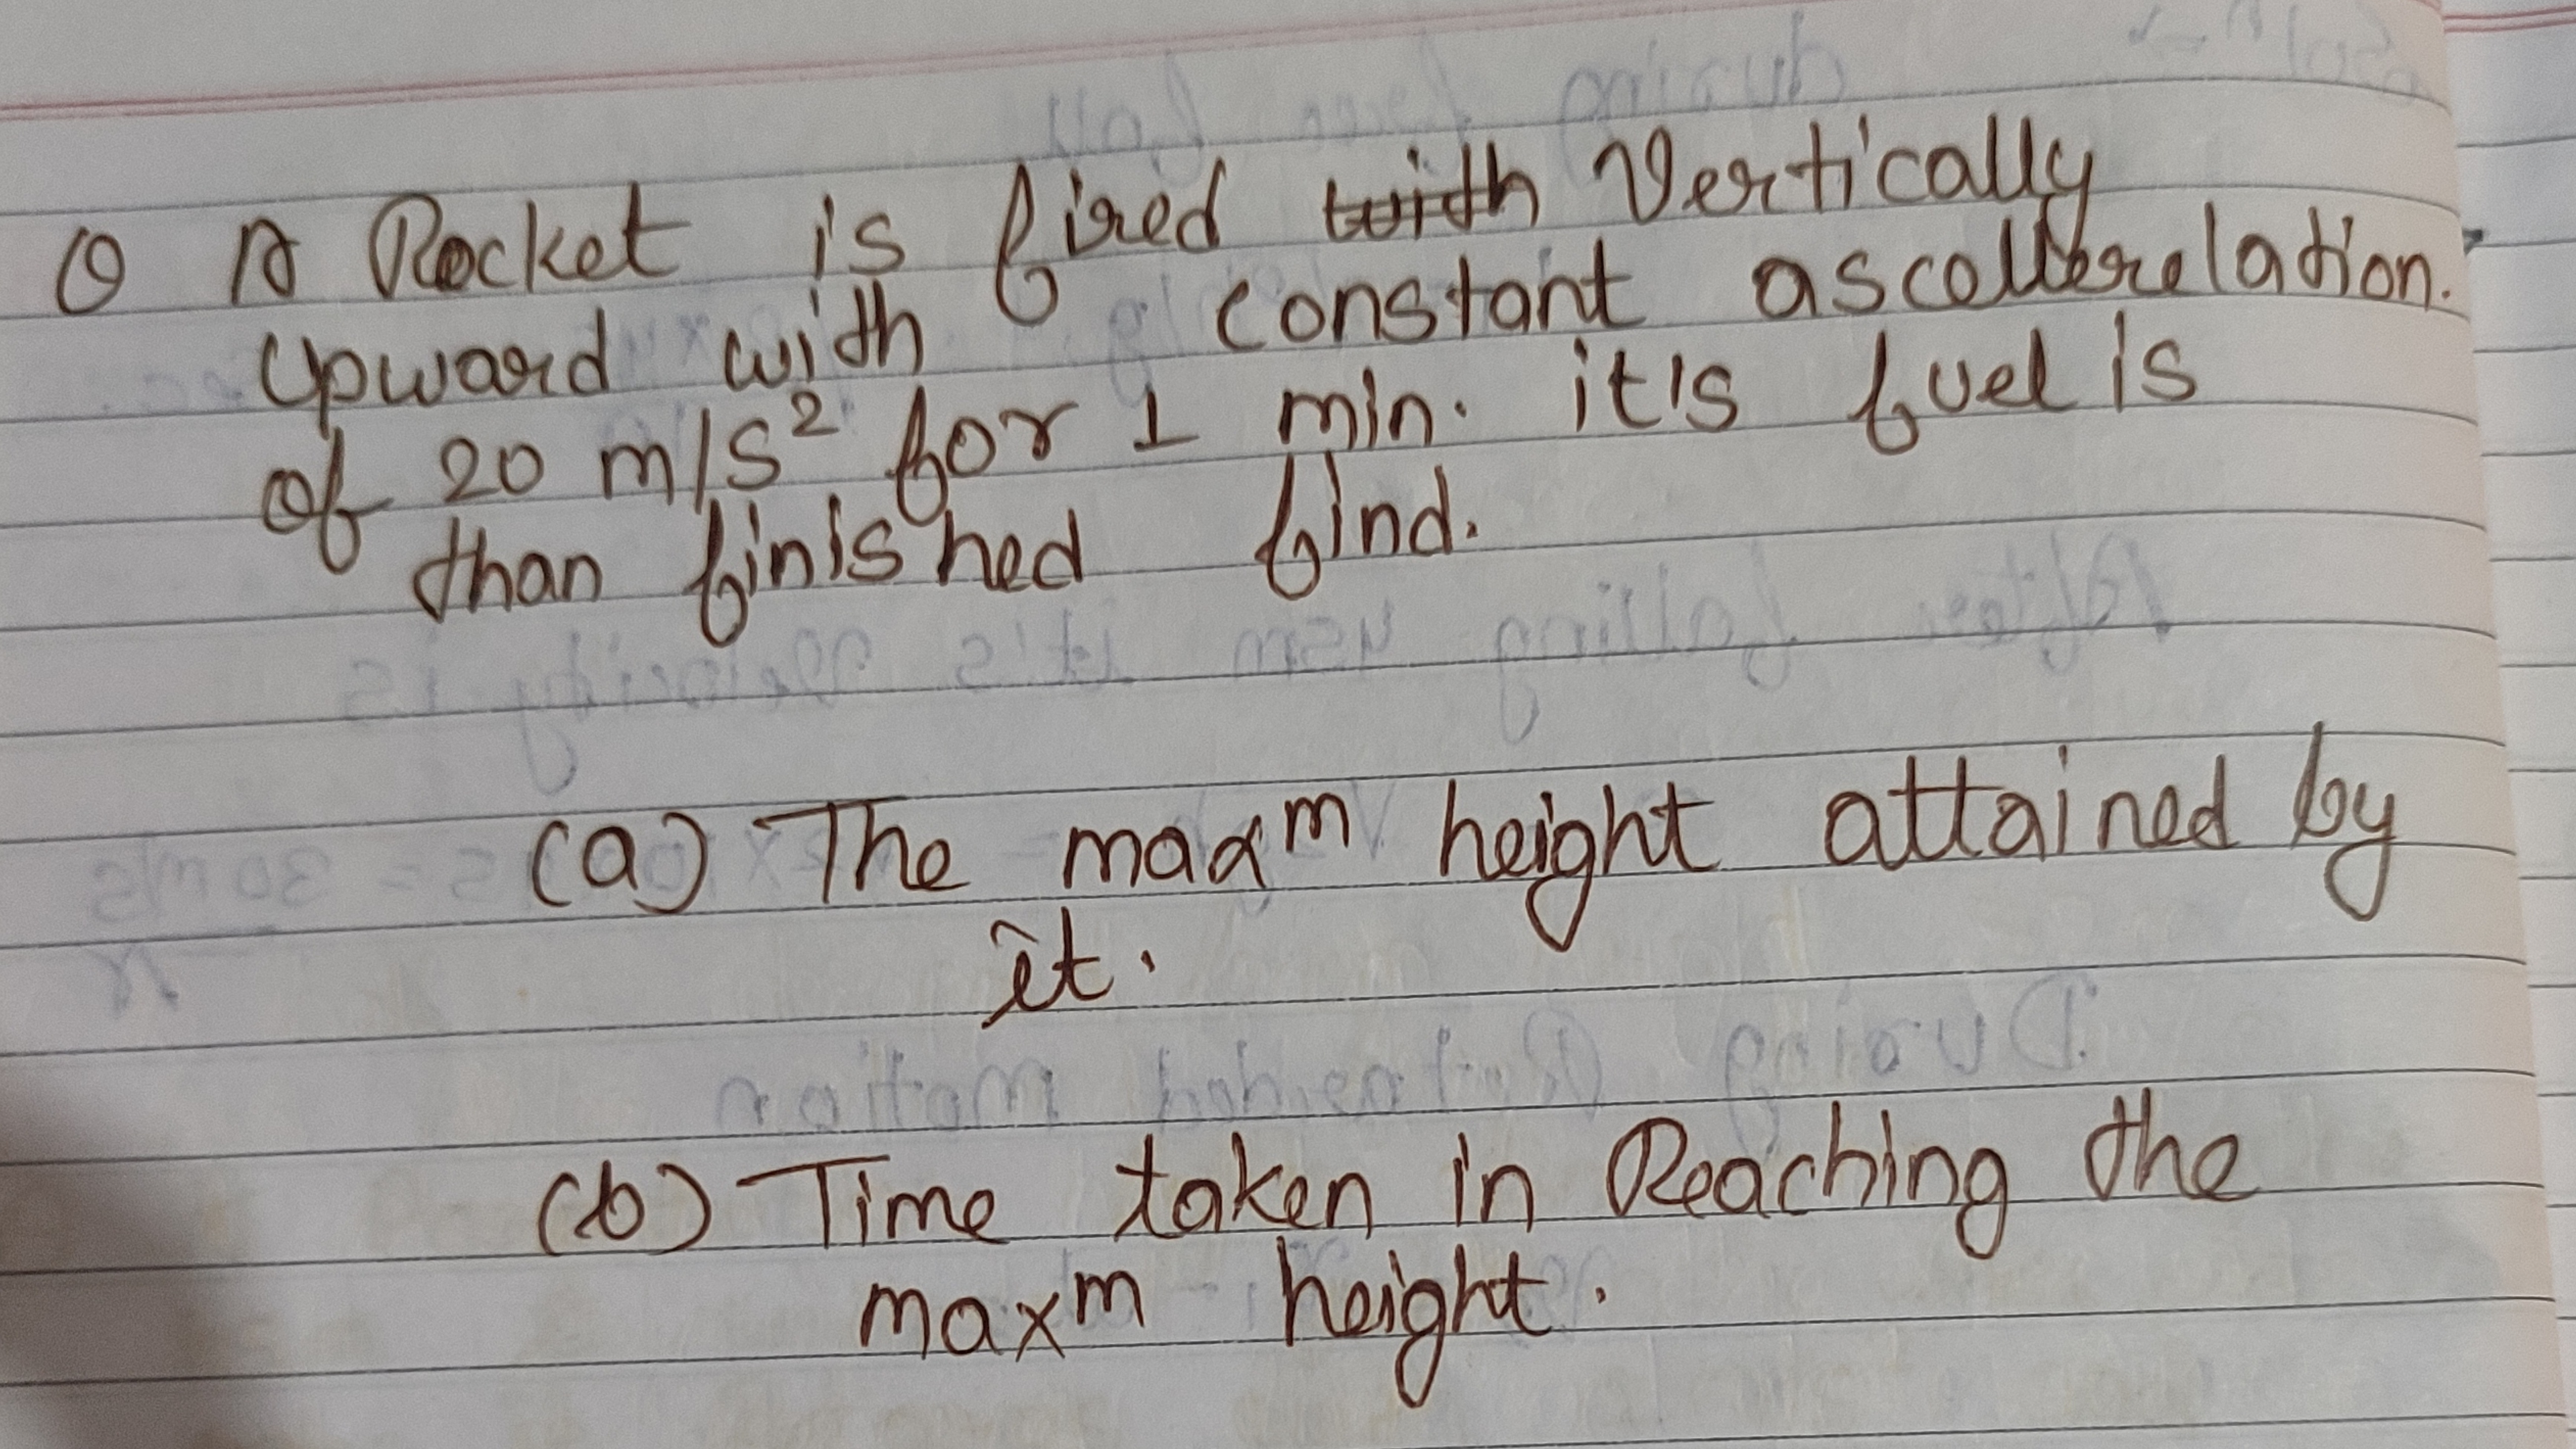 Q A Rocket is fired with Vertically
Upward with constant ascellerelation.
of 20 m/s² for 1 min. it's fuel is
than finished find.
(a) The maxᵐ height attained by
it.
(b) Time taken in Reaching the
maxᵐ height.